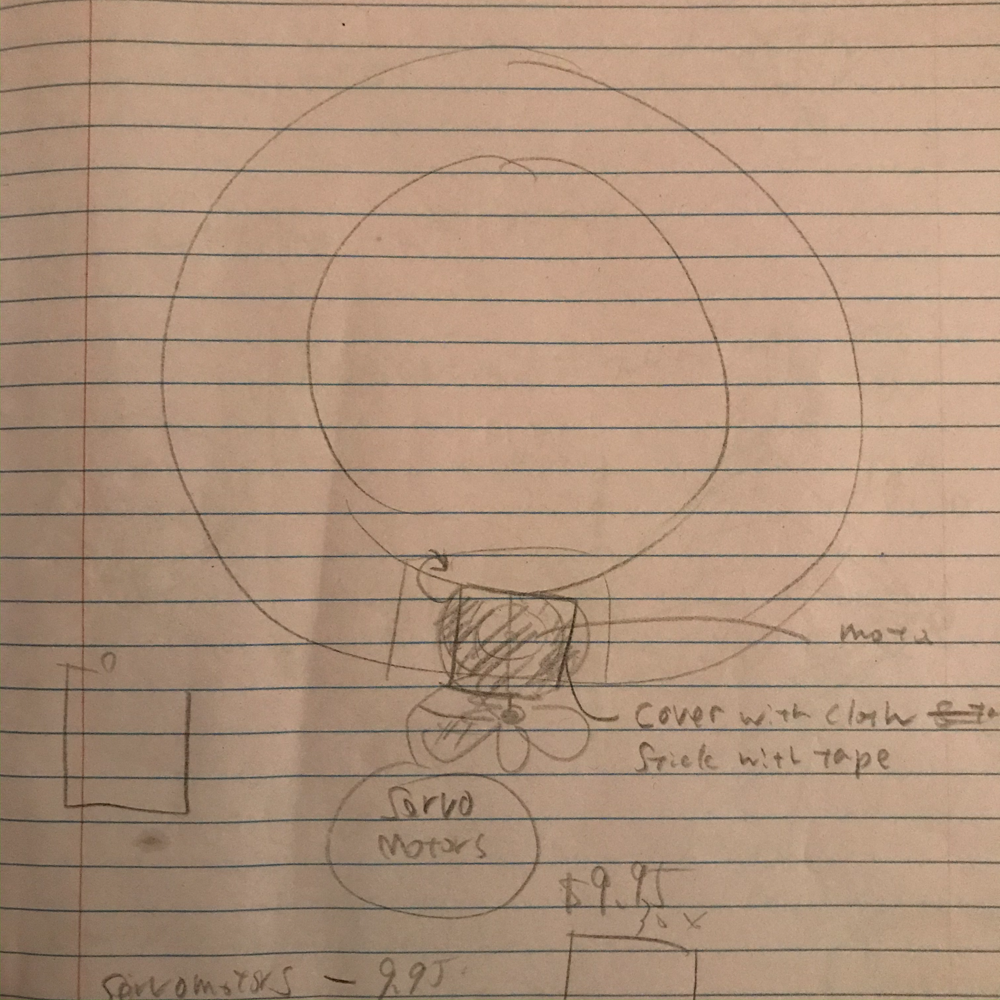 mota
cover with cloth
Stick with tape
Servo
Motors
$9.95
servomotors – 9.95